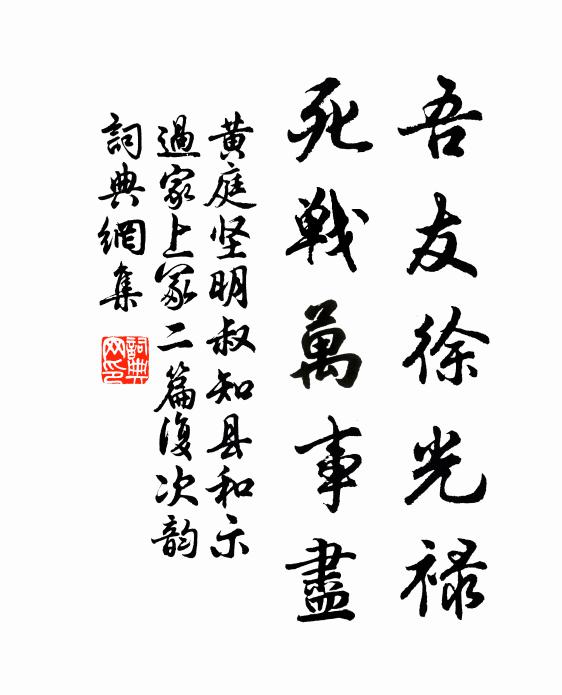 吾友徐光禄
死戰萬事盡
黄庭坚明叔知县和示
過家上冢二篇復次韵
詞典網集
詞典网印